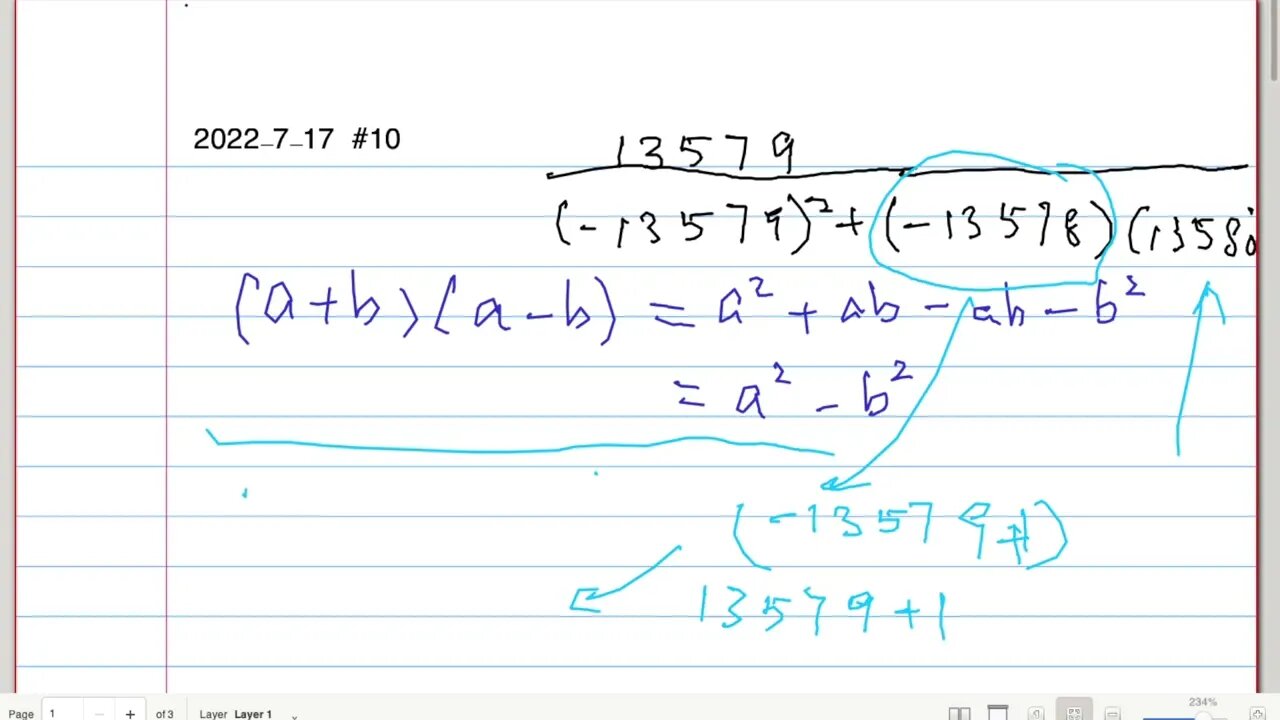 2022_7_17 #10
13579
(-13579)²+(-13578)(13580
(a+b)(a-b) = a²+ab-ab-b²
= a²-b²
(-13579+1)
13579+1
Page 1 - + of 3 Layer Layer 1 234%